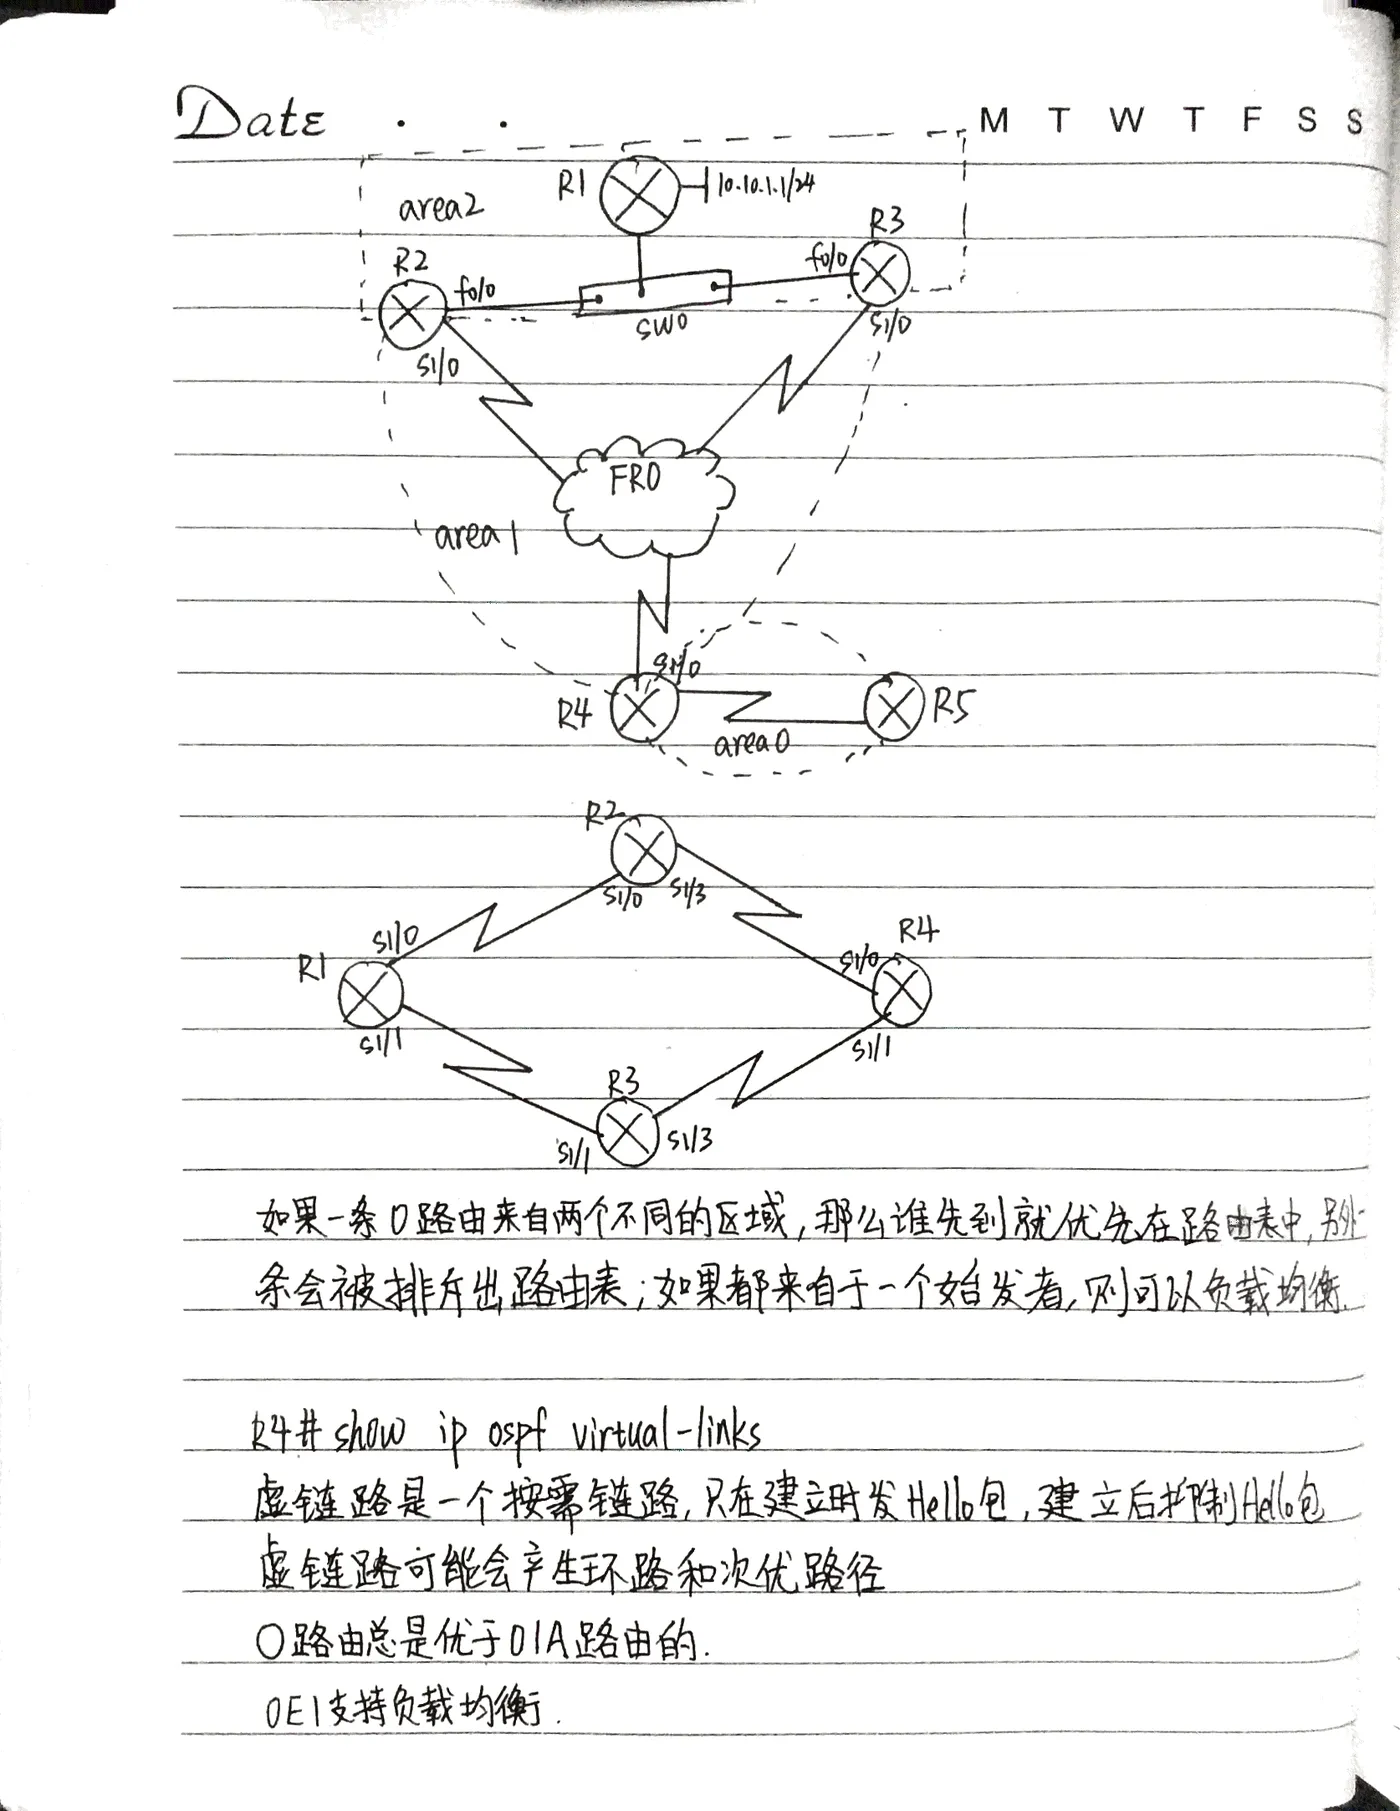 Date . . M T W T F S S
R1 10.10.1.1/24
area2
R3
R2 f0/0 f0/0
SW0 S1/0
S1/0
FR0
area1
S1/0
R4 R5
area0
R2
S1/0 S1/3
S1/0 R4
R1 S1/0
S1/1 S1/1
R3
S1/1 S1/3
如果一条O路由来自两个不同的区域,那么谁先到就优先在路由表中,另外一
条会被排斥出路由表;如果都来自于一个始发者,则可以负载均衡.
R4# show ip ospf virtual-links
虚链路是一个按需链路,只在建立时发Hello包,建立后抑制Hello包
虚链路可能会产生环路和次优路径
O路由总是优于OIA路由的.
OE1支持负载均衡.